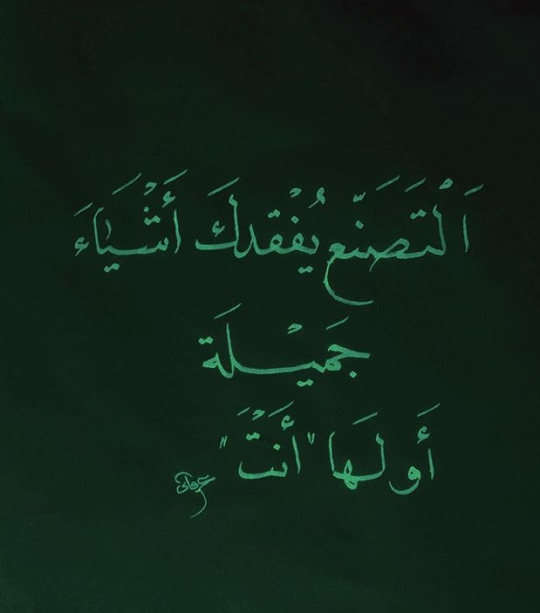 اَلْتَصَنّع يُفْقدكَ أَشْيَاءَ
جَميْلَة
أَولهَا "أَنْتَ"